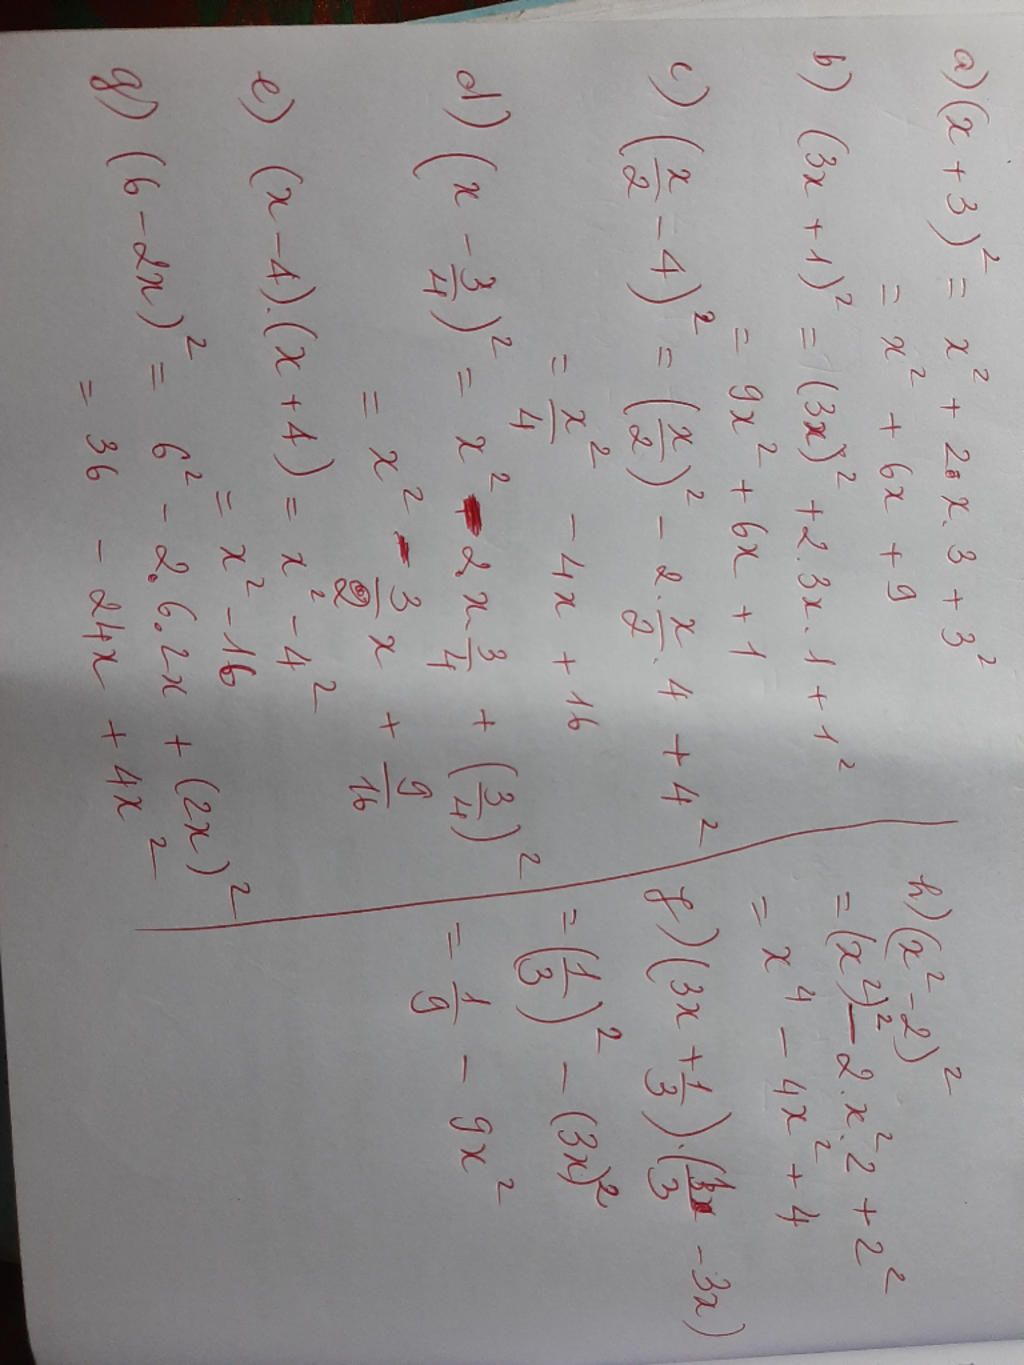 a) (x + 3)² = x² + 2.x.3 + 3²
= x² + 6x + 9
b) (3x + 1)² = (3x)² + 2.3x.1 + 1²
= 9x² + 6x + 1
c) (x/2 - 4)² = (x/2)² - 2.x/2.4 + 4²
= x²/4 - 4x + 16
d) (x - 3/4)² = x² - 2.x.3/4 + (3/4)²
= x² - 3/2 x + 9/16
e) (x - 4).(x + 4) = x² - 4²
= x² - 16
g) (6 - 2x)² = 6² - 2.6.2x + (2x)²
= 36 - 24x + 4x²
h) (x² - 2)²
= (x²)² - 2.x².2 + 2²
= x⁴ - 4x² + 4
f) (3x + 1/3).(1/3 - 3x)
= (1/3)² - (3x)²
= 1/9 - 9x²